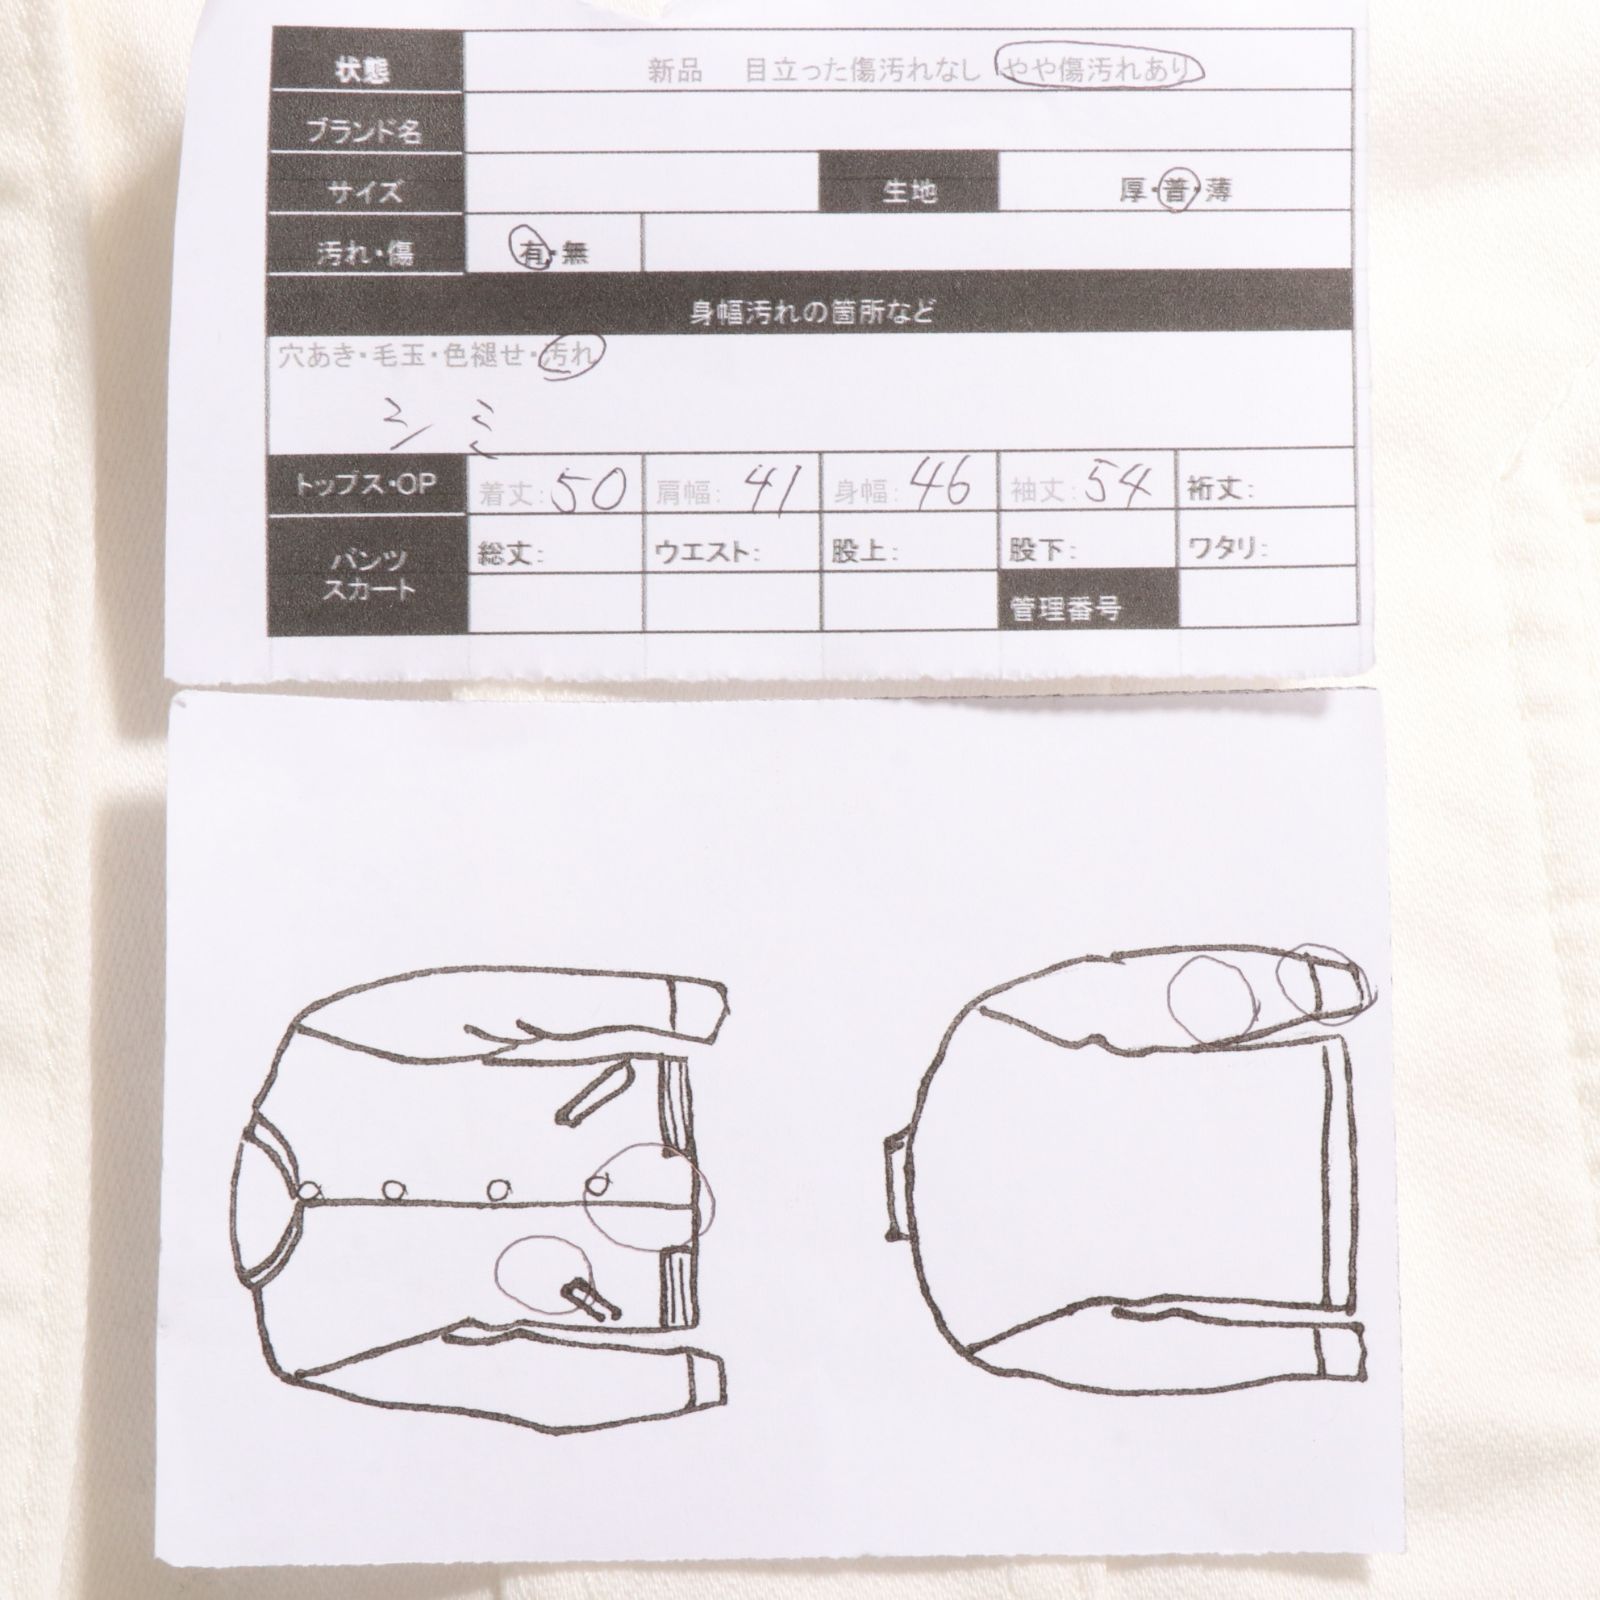 状態 新品 目立った傷汚れなし やや傷汚れあり
ブランド名
サイズ 生地 厚・普・薄
汚れ・傷 有・無
身幅汚れの箇所など
穴あき・毛玉・色褪せ・汚れ
シミ
トップス・OP 着丈:50 肩幅:41 身幅:46 袖丈:54 裄丈:
パンツ スカート 総丈: ウエスト: 股上: 股下: ワタリ:
管理番号